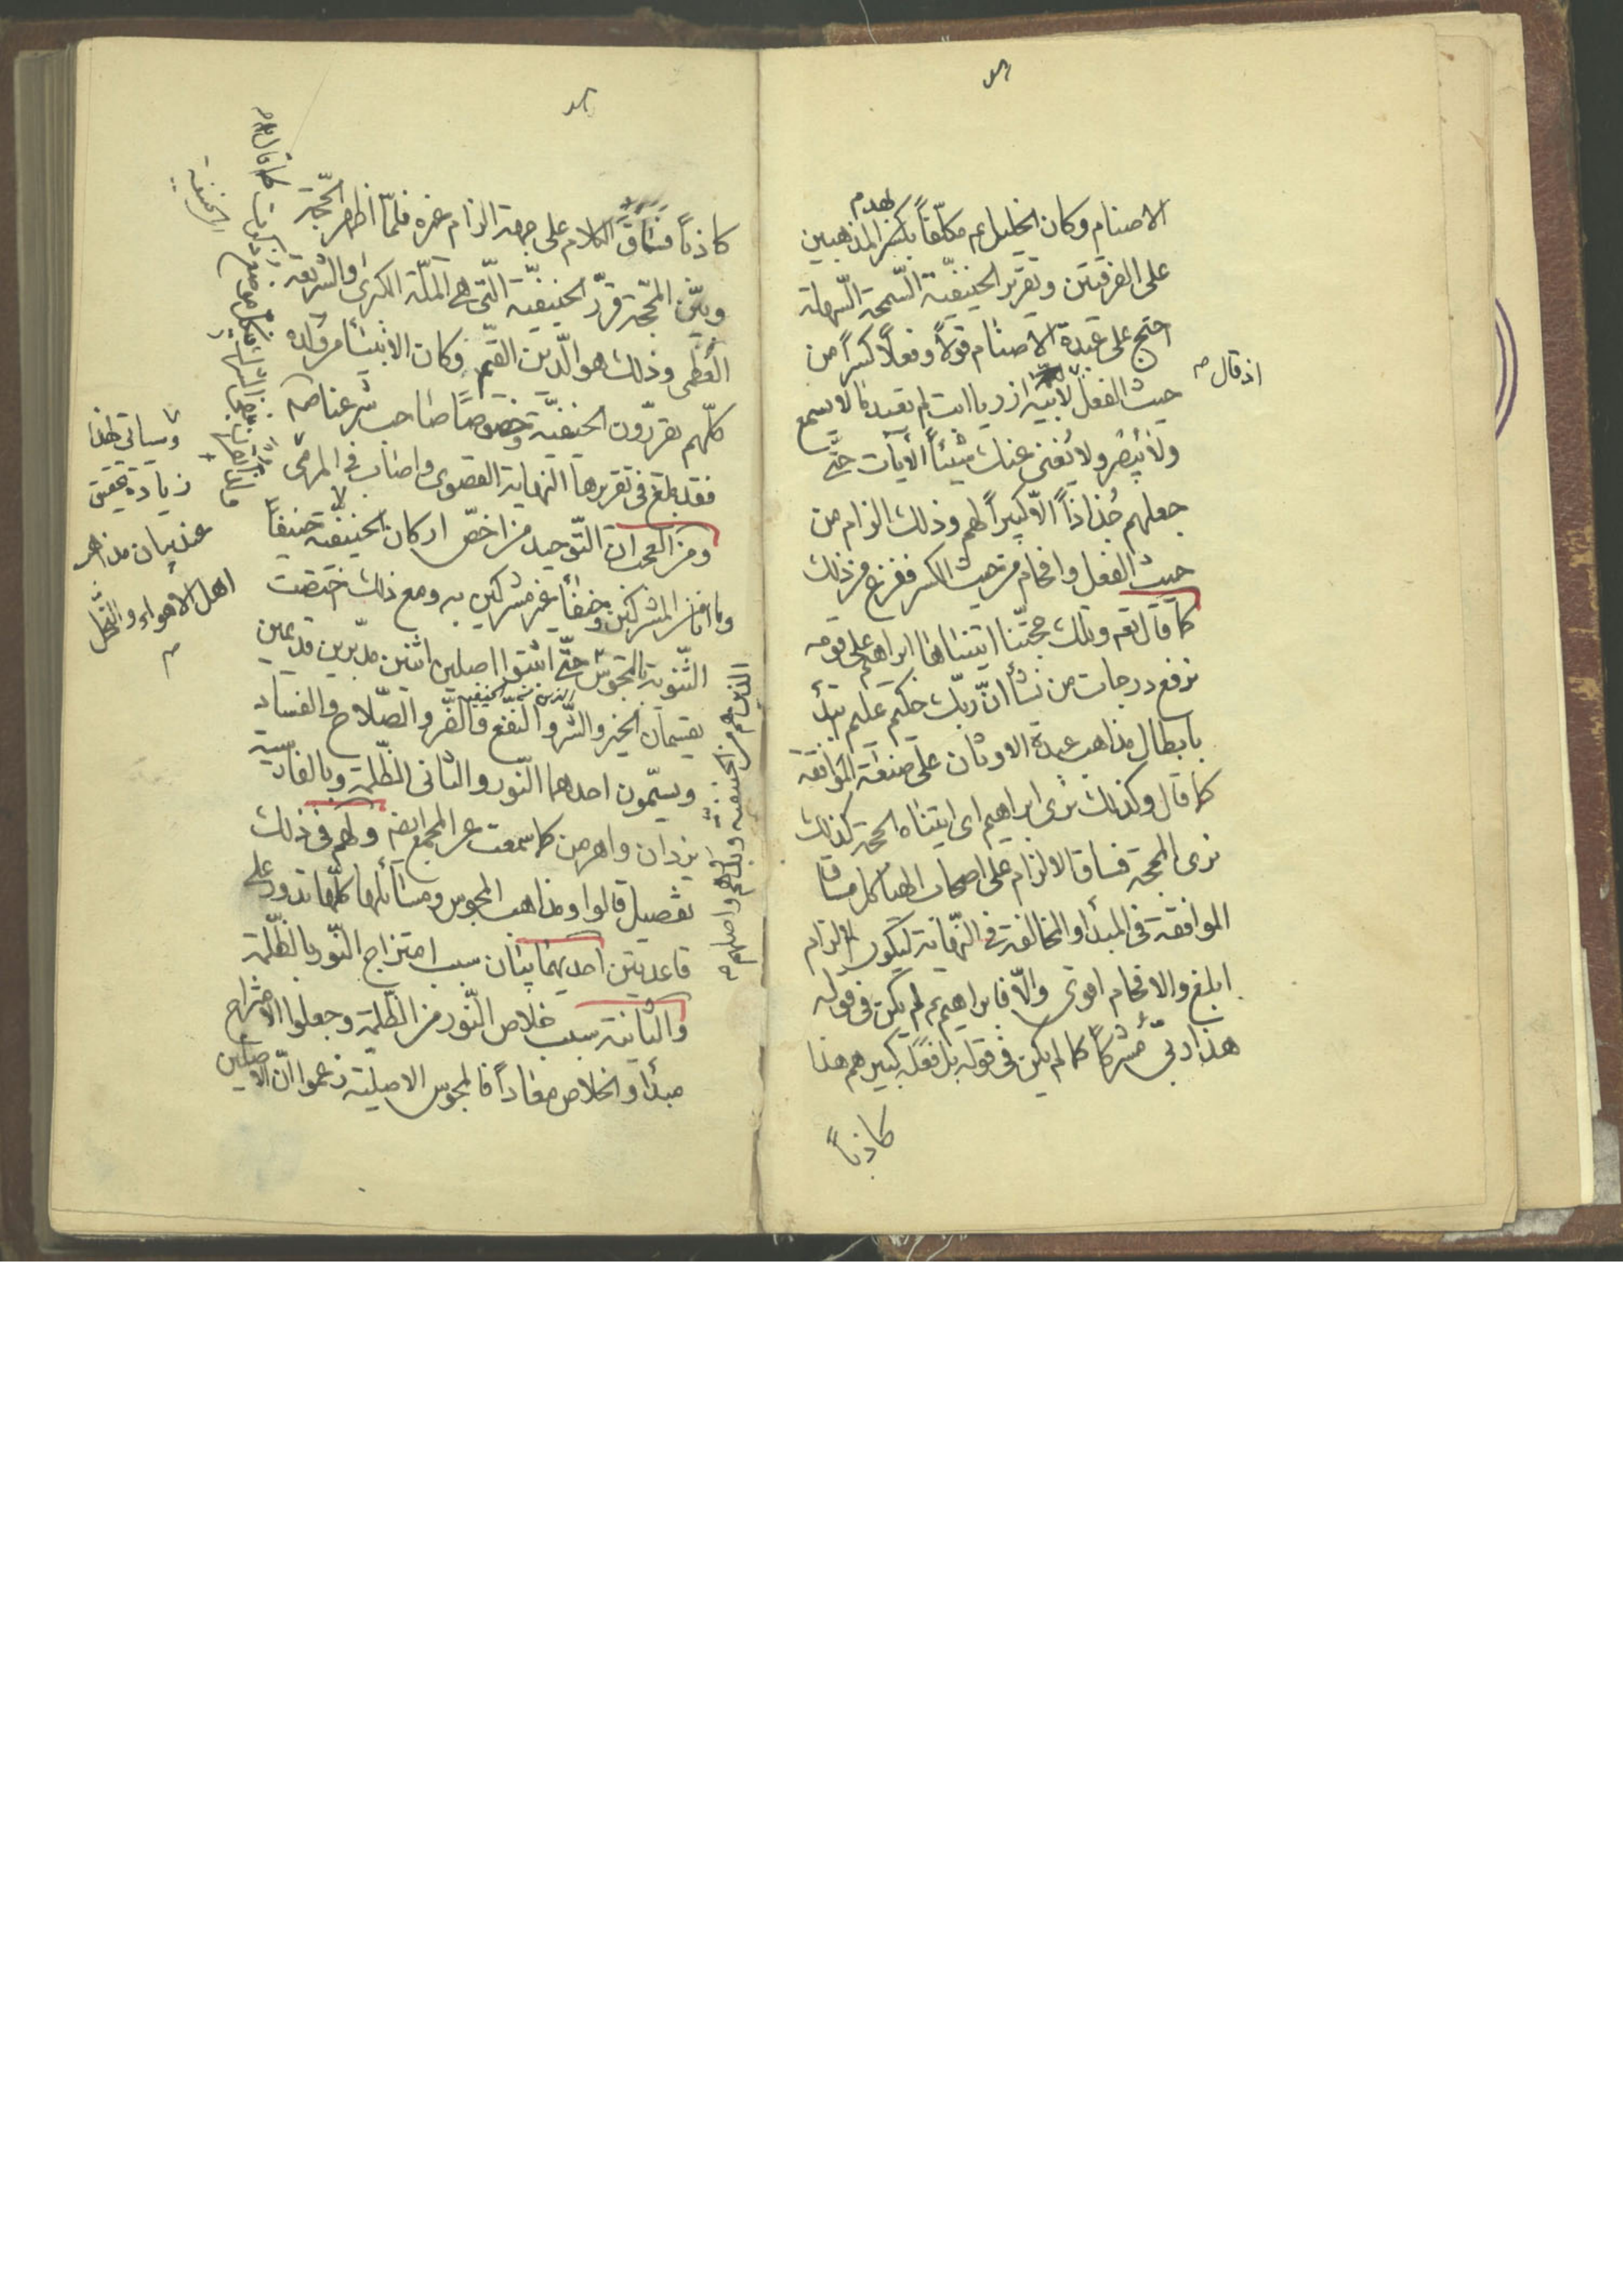 الاصنام وكان الخليل عم مكلّفاً بكسر المذهبين
لهدم
على الفرقتين وتقرير الحنيفيّة السّمحة السّهلة
احتج على عبدة الاصنام قولاً وفعلاً كسراً من
اذ قال
حيث الفعل لأبيه ازر يا ابت لم تعبد ما لا يسمع
ولا يُبصر ولا يُغنى عنك شيئاً الآيات حتّى
جعلهم جُذاذاً الّا كبيراً لهم وذلك الزام من
حيث الفعل وافحام من حيث الكسر ففرغ من ذلك
كما قال تعم وتلك حجّتنا اتيناها ابراهيم على قومه
نرفع درجات من نشأ انّ ربّك حكيم عليم
بابطال مذاهب عبدة الاوثان على صيغة الموافقة
كما قال وكذلك نرى ابراهيم اى اتيناه الحجة كذلك
نرى المحجة فساق الالزام على اصحاب الهياكل مساق
الموافقة فى المبدأ والمخالفة فى النّهاية ليكون الالزام
ابلغ والافحام اقوى والّا فابراهيم عم لم يكن فى قوله
هذا ربّى مشركاً كما لم يكن فى قوله بل فعله كبيرهم هذا
كاذباً
كاذباً فساق الكلام على جهة الزام غيره فلمّا اظهر الحجّة
وبيّن المحجّة قرّر الحنيفيّة الّتى هى الملّة الكبرى والشّريعة
العُظمى وذلك هو الدّين القيّم وكان الأنبيئاء من اولاده
كلّهم يقرّرون الحنيفيّة وخصوصاً صاحب شرعنا صم
فقد بلغ فى تقريرها النهاية القصوى واصاب فى المرمى
ومن العجب انّ التّوحيد من اخصّ اركان الحنيفيّة حنيفاً
وما انا من المشركين وحنفأ غير مشركين به ومع ذلك اختصّت
الثّنويّة بالمجوس حتّى اثبتوا اصلين اثنين مدبّرين قديمين
يقتسمان الخير والشّر والنّفع والضّر والصّلاح والفساد
ويسمّون احدهما النّور والثانى الظّلمة وبالفارسية
يزدان واهرمن كما سمعت عن المجمع ايضه ولهم فى ذلك
تفصيل قالوا ومذاهب المجوس ومسائلها كلّها تدور على
قاعدتين احديهما بيان سبب امتزاج النّور بالظّلمة
والثانية سبب خلاص النّور من الظّلمة وجعلوا الامتزاج
مبدأ والخلاص معاداً فالمجوس الاصليّة زعموا انّ الاصلين
وسيأتى لهذا
زيادة تحقيق
عند بيان مذاهب
اهل الاهواء والنّحل